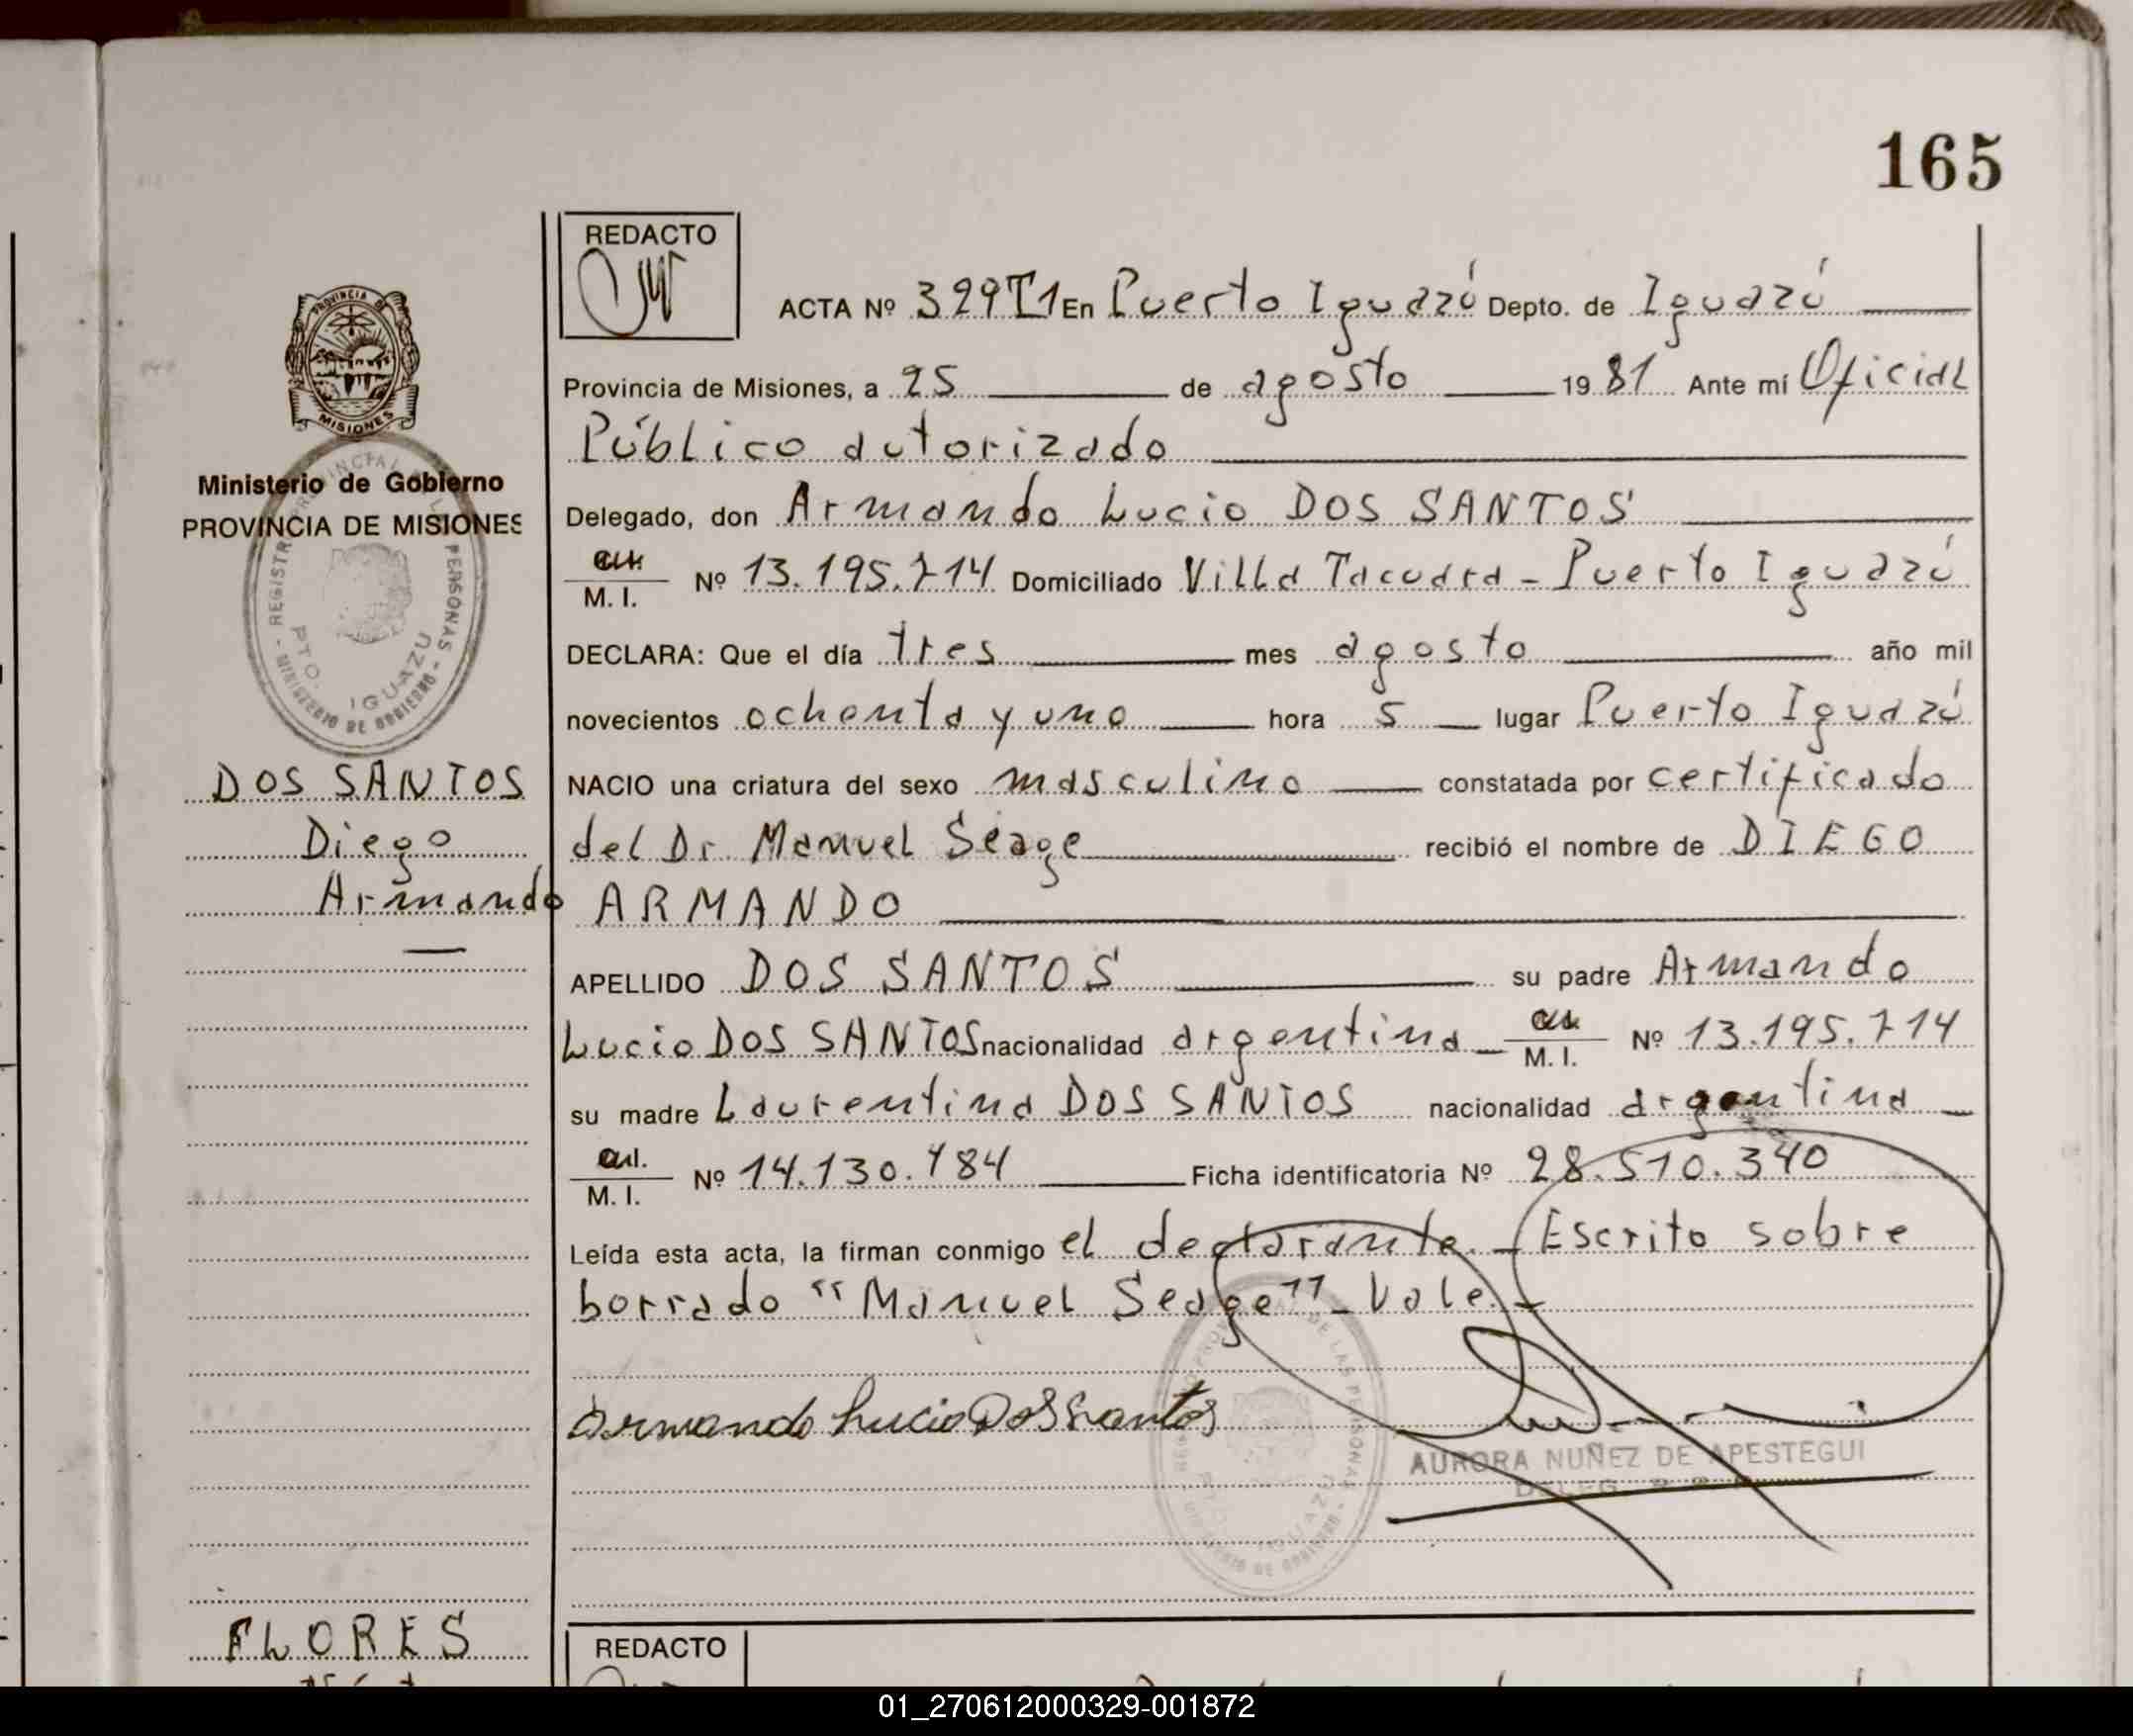 165
REDACTO
ACTA Nº 329T1 En Puerto Iguazú Depto. de Iguazú
Provincia de Misiones, a 25 de agosto 1981 Ante mí Oficial
Público autorizado
Delegado, don Armando Lucio DOS SANTOS
M. I. Nº 13.195.714 Domiciliado Villa Tacuara - Puerto Iguazú
DECLARA: Que el día tres mes agosto año mil
novecientos ochenta y uno hora 5 lugar Puerto Iguazú
NACIO una criatura del sexo masculino constatada por certificado
del Dr. Manuel Seage recibió el nombre de DIEGO
ARMANDO
APELLIDO DOS SANTOS su padre Armando
Lucio DOS SANTOS nacionalidad argentina M. I. Nº 13.195.714
su madre Laurentina DOS SANTOS nacionalidad argentina
M. I. Nº 14.130.484 Ficha identificatoria Nº 28.510.340
Leída esta acta, la firman conmigo el declarante. - Escrito sobre
borrado "Manuel Seage" - Vale. -
Armando Lucio Dos Santos
AURORA NUÑEZ DE APESTEGUI
PROVINCIA DE
MISIONES
Ministerio de Gobierno
PROVINCIA DE MISIONES
REGISTRO PROVINCIAL DE LAS PERSONAS - MINISTERIO DE GOBIERNO -
PTO. IGUAZU
DOS SANTOS
Diego
Armando
FLORES
REDACTO
01_270612000329-001872